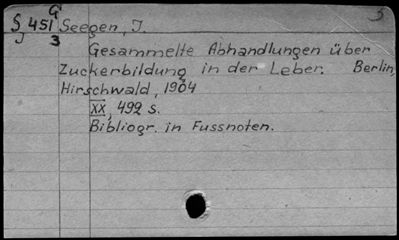 G
§ 451 Seegen, J.
J 3
Gesammelte Abhandlungen über
Zuckerbildung in der Leber. Berlin,
Hirschwald, 1904
XX, 492 s.
Bibliogr. in Fussnoten.